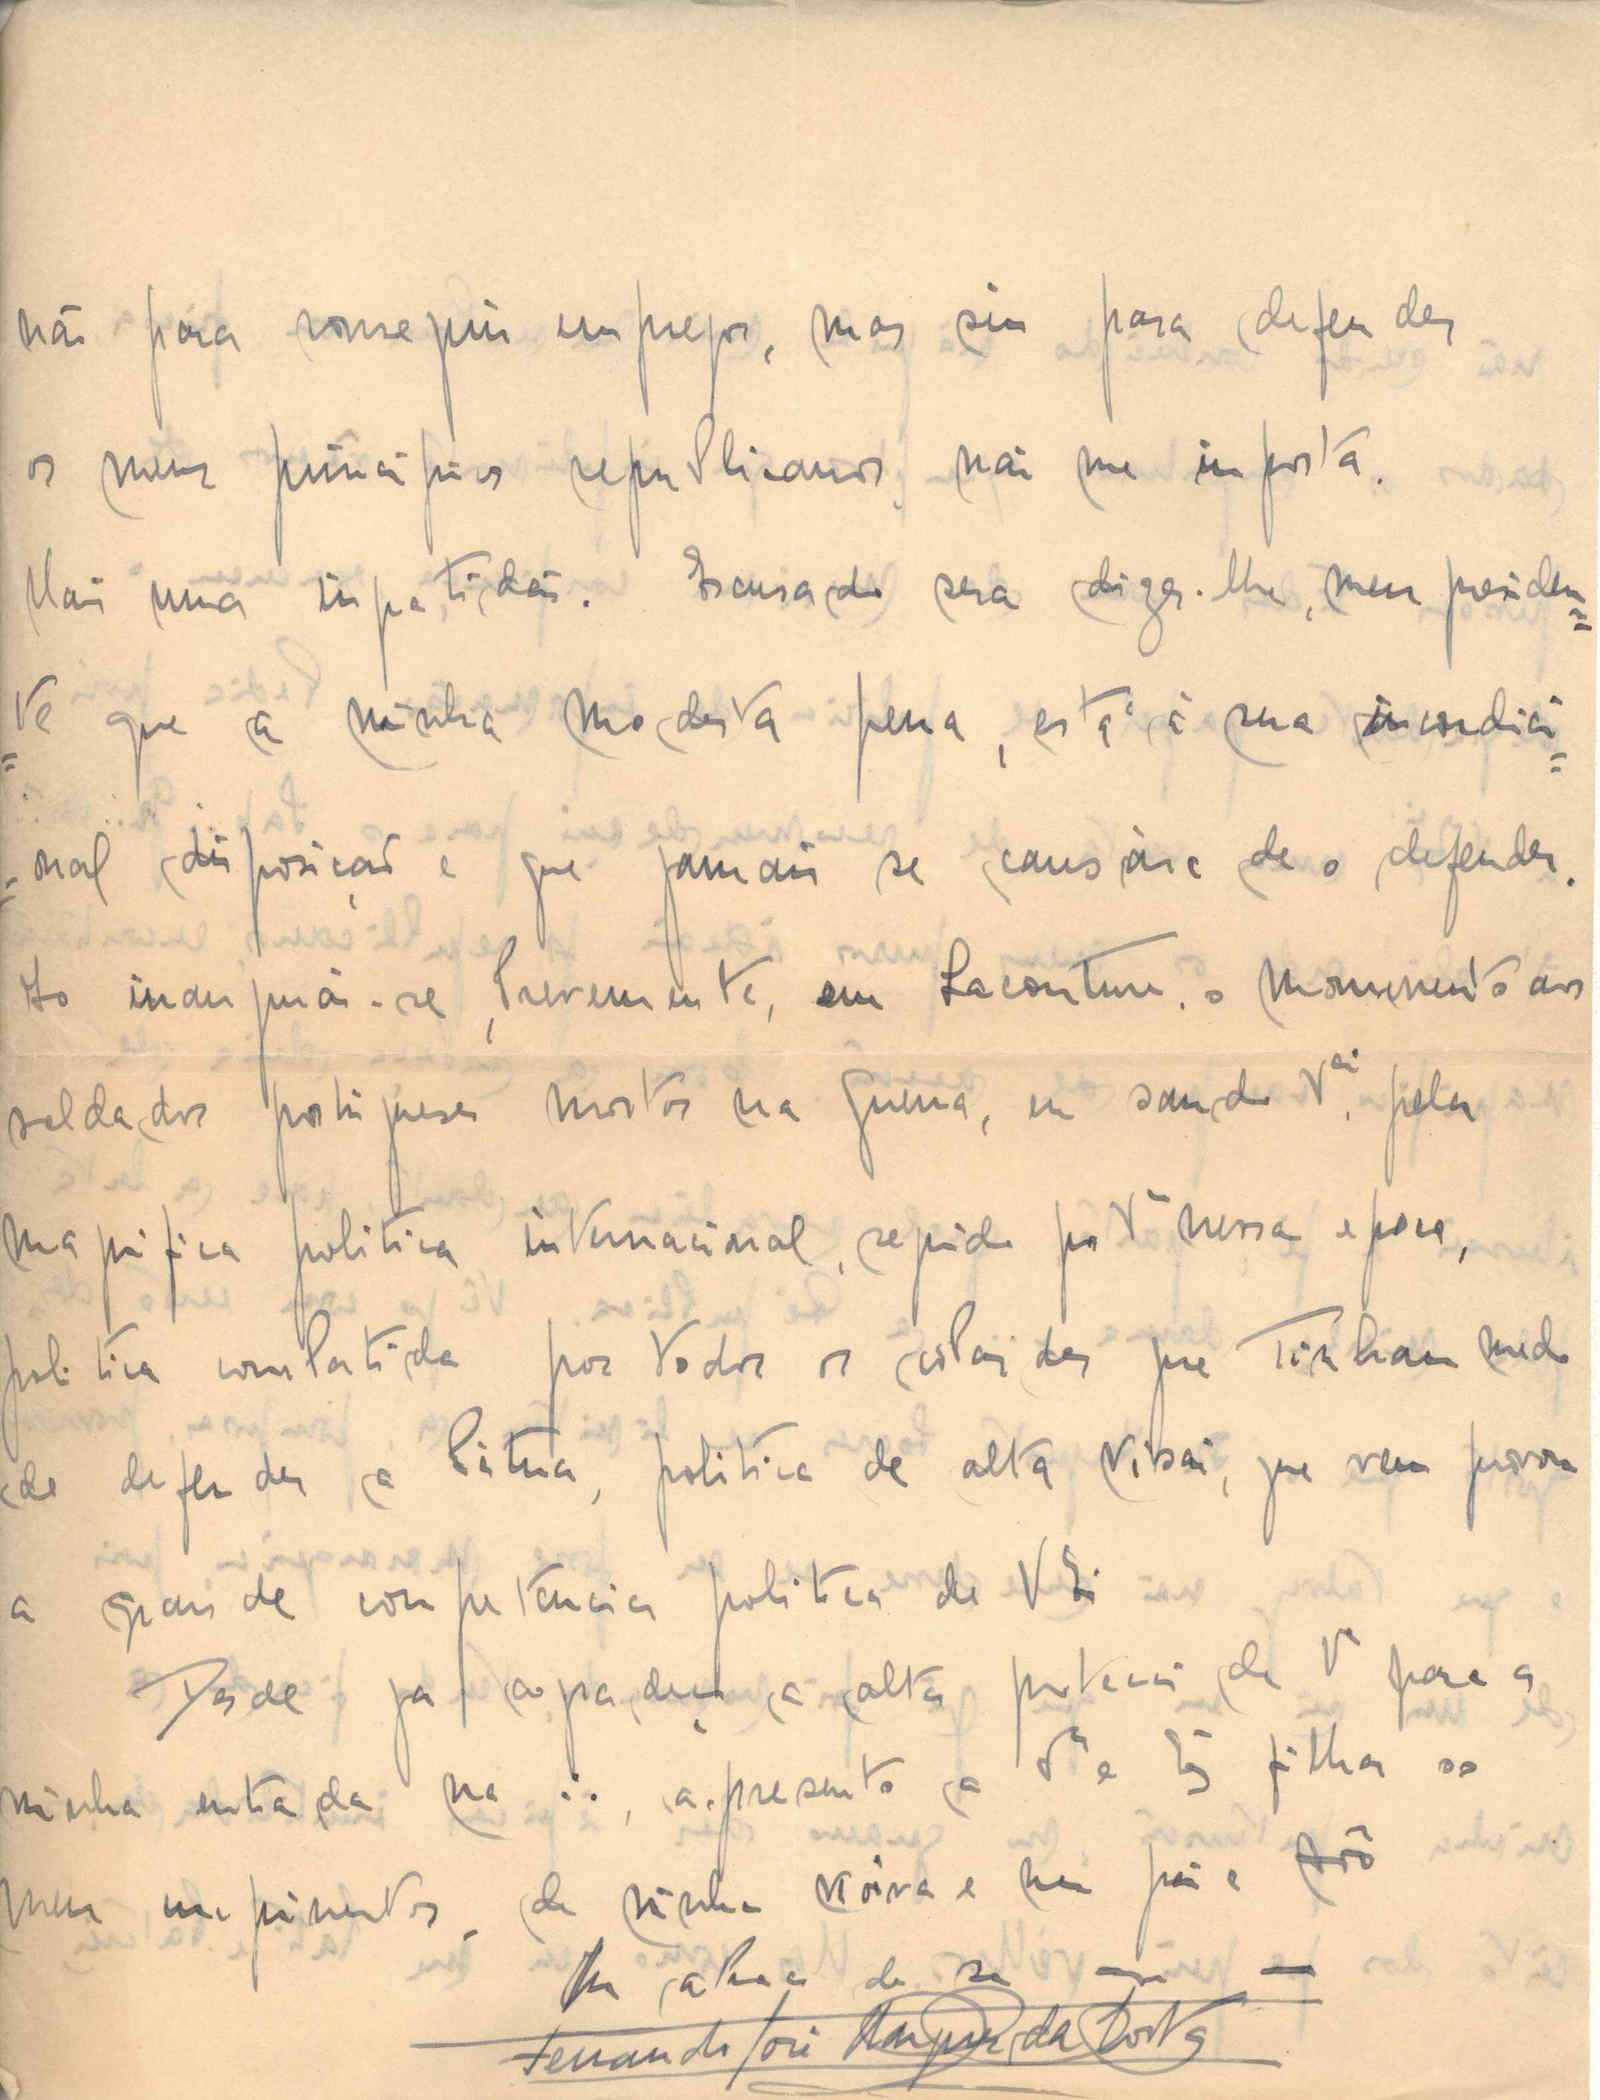 não para conseguir empregos, mas sim para defender
os meus principios republicanos, não me importa.
Mais uma ingratidão. Escusado sera dizer-lhe, meu presiden=
=te que a minha modesta pena, está á sua incondici=
=onal disposição e que jamais se cansára de o defender.
inaugurar-se, brevemente, em Lacouture, o monumento aos
soldados portugueses mortos na Guerra, pela
magnifica politica internacional, seguida por V nessa epoca,
politica combatida por todos os cobardes que tinham medo
de defender a Patria, politica de alta visão, que vem provar
a grande competencia politica de V
Desde já agradeço a alta protecção de V para a
minha entrada na .·., apresento a V e filha os
meus cumprimentos, de minha noiva e meu pai e
Um abraço de
Fernando José Marques da Costa